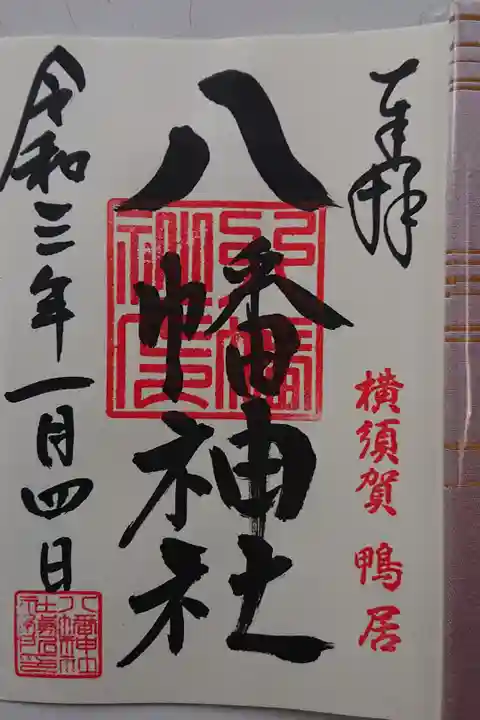 奉拝
横須賀 鴨居
八幡神社
令和三年一月四日